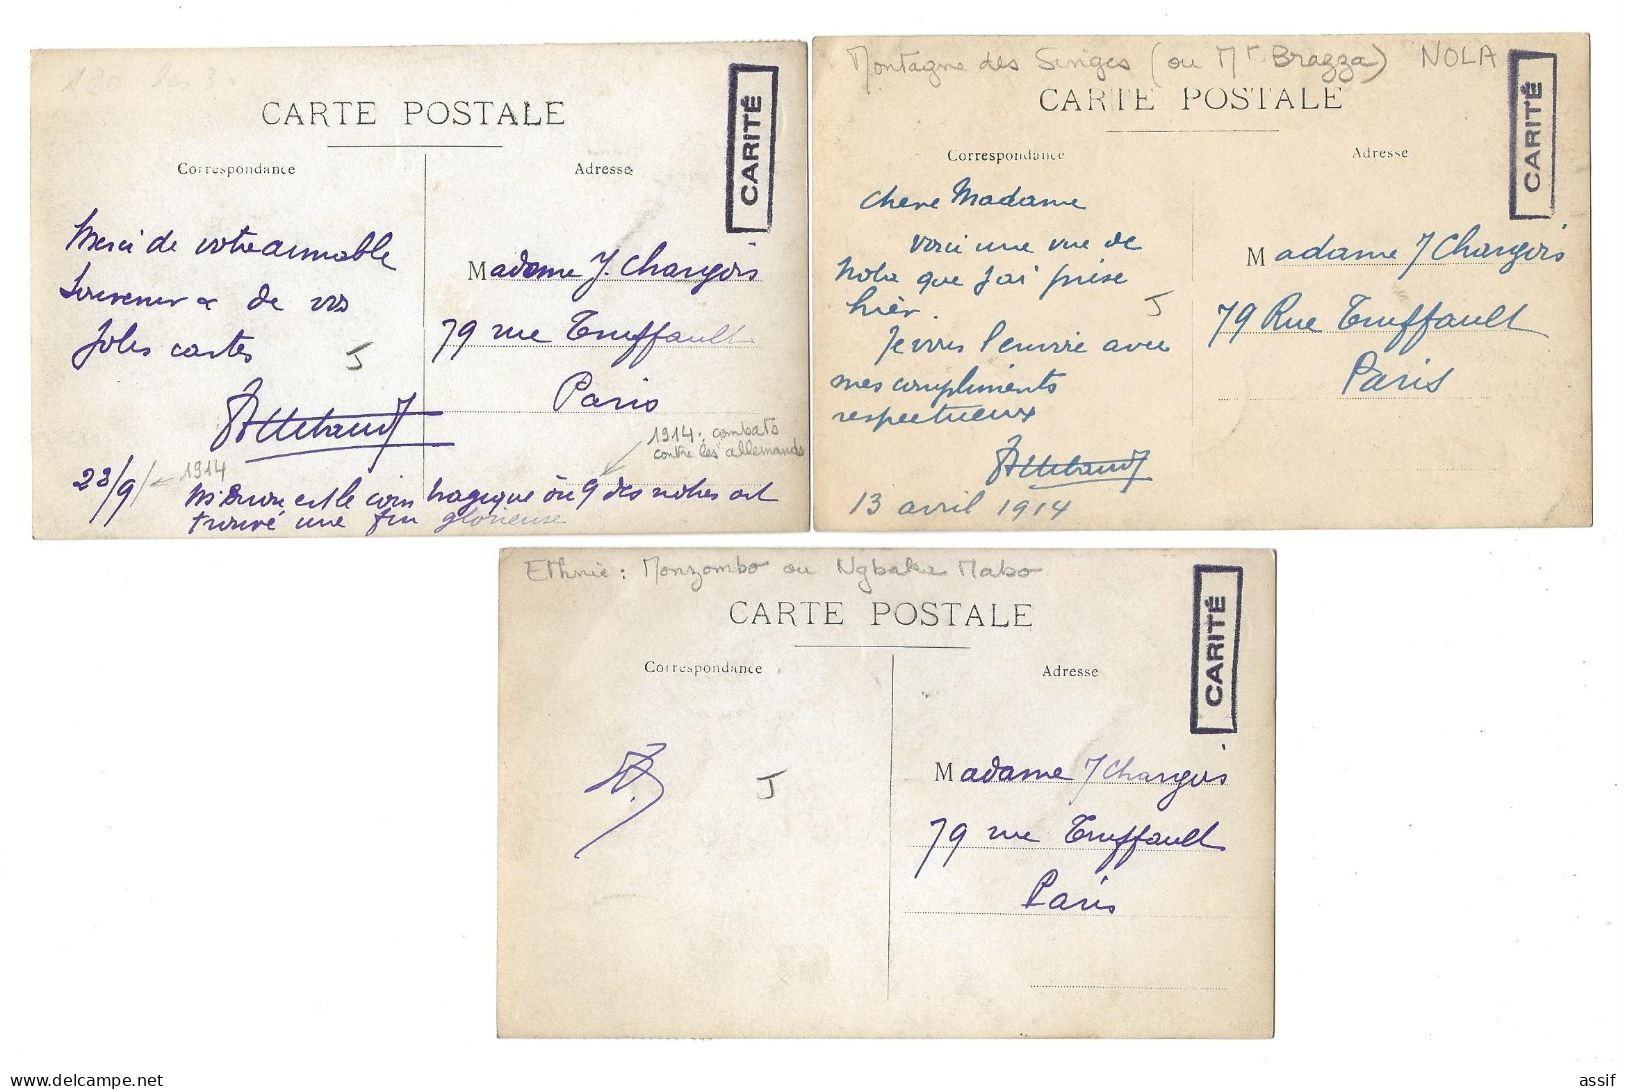 CARTE POSTALE
CARITÉ
Correspondance
Adresse
Merci de votre aimable
Souvenir & de vos
Jolies cartes
23/9/
1914
Madame J. Changois
79 rue Truffault
Paris
1914: combats
contre les allemands
est le coin tragique où 9 des notres ont
trouvé une fin glorieuse
Montagne des Singes (ou Mt Brazza) NOLA
CARTE POSTALE
CARITÉ
Correspondance
Adresse
Chere Madame
Voici une vue de
Nola que j'ai prise
hier.
Je vous l'envoie avec
mes compliments
respectueux
13 avril 1914
J
J
Madame J Changois
79 Rue Truffault
Paris
Ethnie: Monzombo ou Ngbaka Mabo
CARTE POSTALE
CARITÉ
Correspondance
Adresse
J
Madame J Changois
79 rue Truffault
Paris
delcampe.net
assif